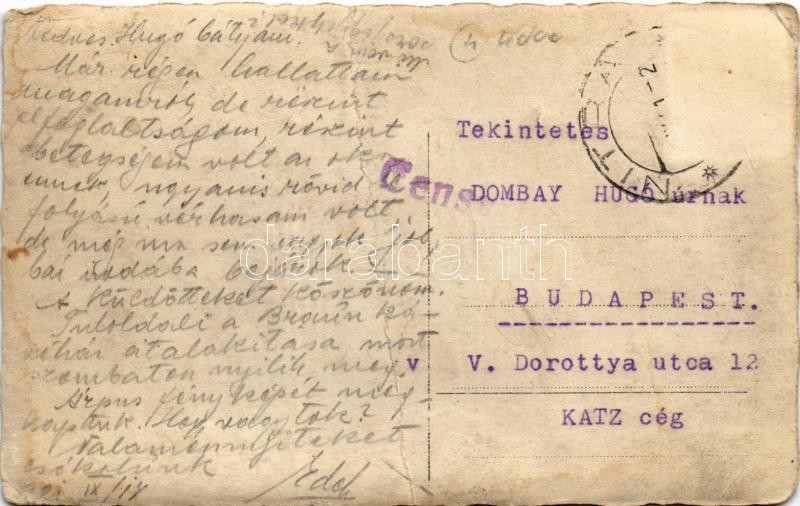 Kedves Hugó bátyám.
Már régen hallattam
magamról, de részint
elfoglaltságom, részint
betegségem volt az oka
ennek, ugyanis rövid
folyású vérhasam volt,
de még ma sem
bai irodába
A küldötteket köszönöm.
Tuloldali a Braun ká-
véház átalakítása most
szombaton nyilik meg.
Árpus fényképét meg-
kaptuk. Hogy vagytok?
Valamennyiteket
csókolunk
Edeh
IX/14
Cens
NITRA
Tekintetes
DOMBAY HUGÓ úrnak
BUDAPEST.
V. Dorottya utca 12
v
KATZ cég
darabanth